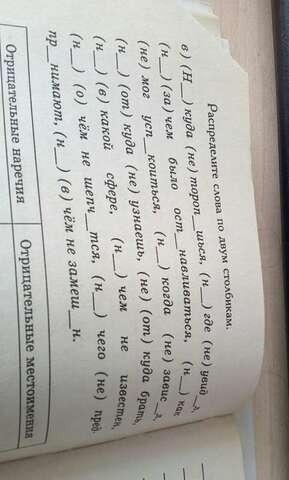 Распределите слова по двум столбикам.
в) (Н__) куда (не) тороп__шься, (н__) где (не) увид__л,
(н__) (за) чем было ост__навливаться, (н__) как
(не) мог усп__коиться, (н__) когда (не) завис__л,
(н__) (от) куда (не) узнаешь, (не) (от) куда брать,
(н__) (в) какой сфере, (н__) чем не известен,
(н__) (о) чём не шепч__тся, (н__) чего (не) пред-
пр__нимают, (н__) (в) чём не замеш__н.
Отрицательные наречия
Отрицательные местоимения